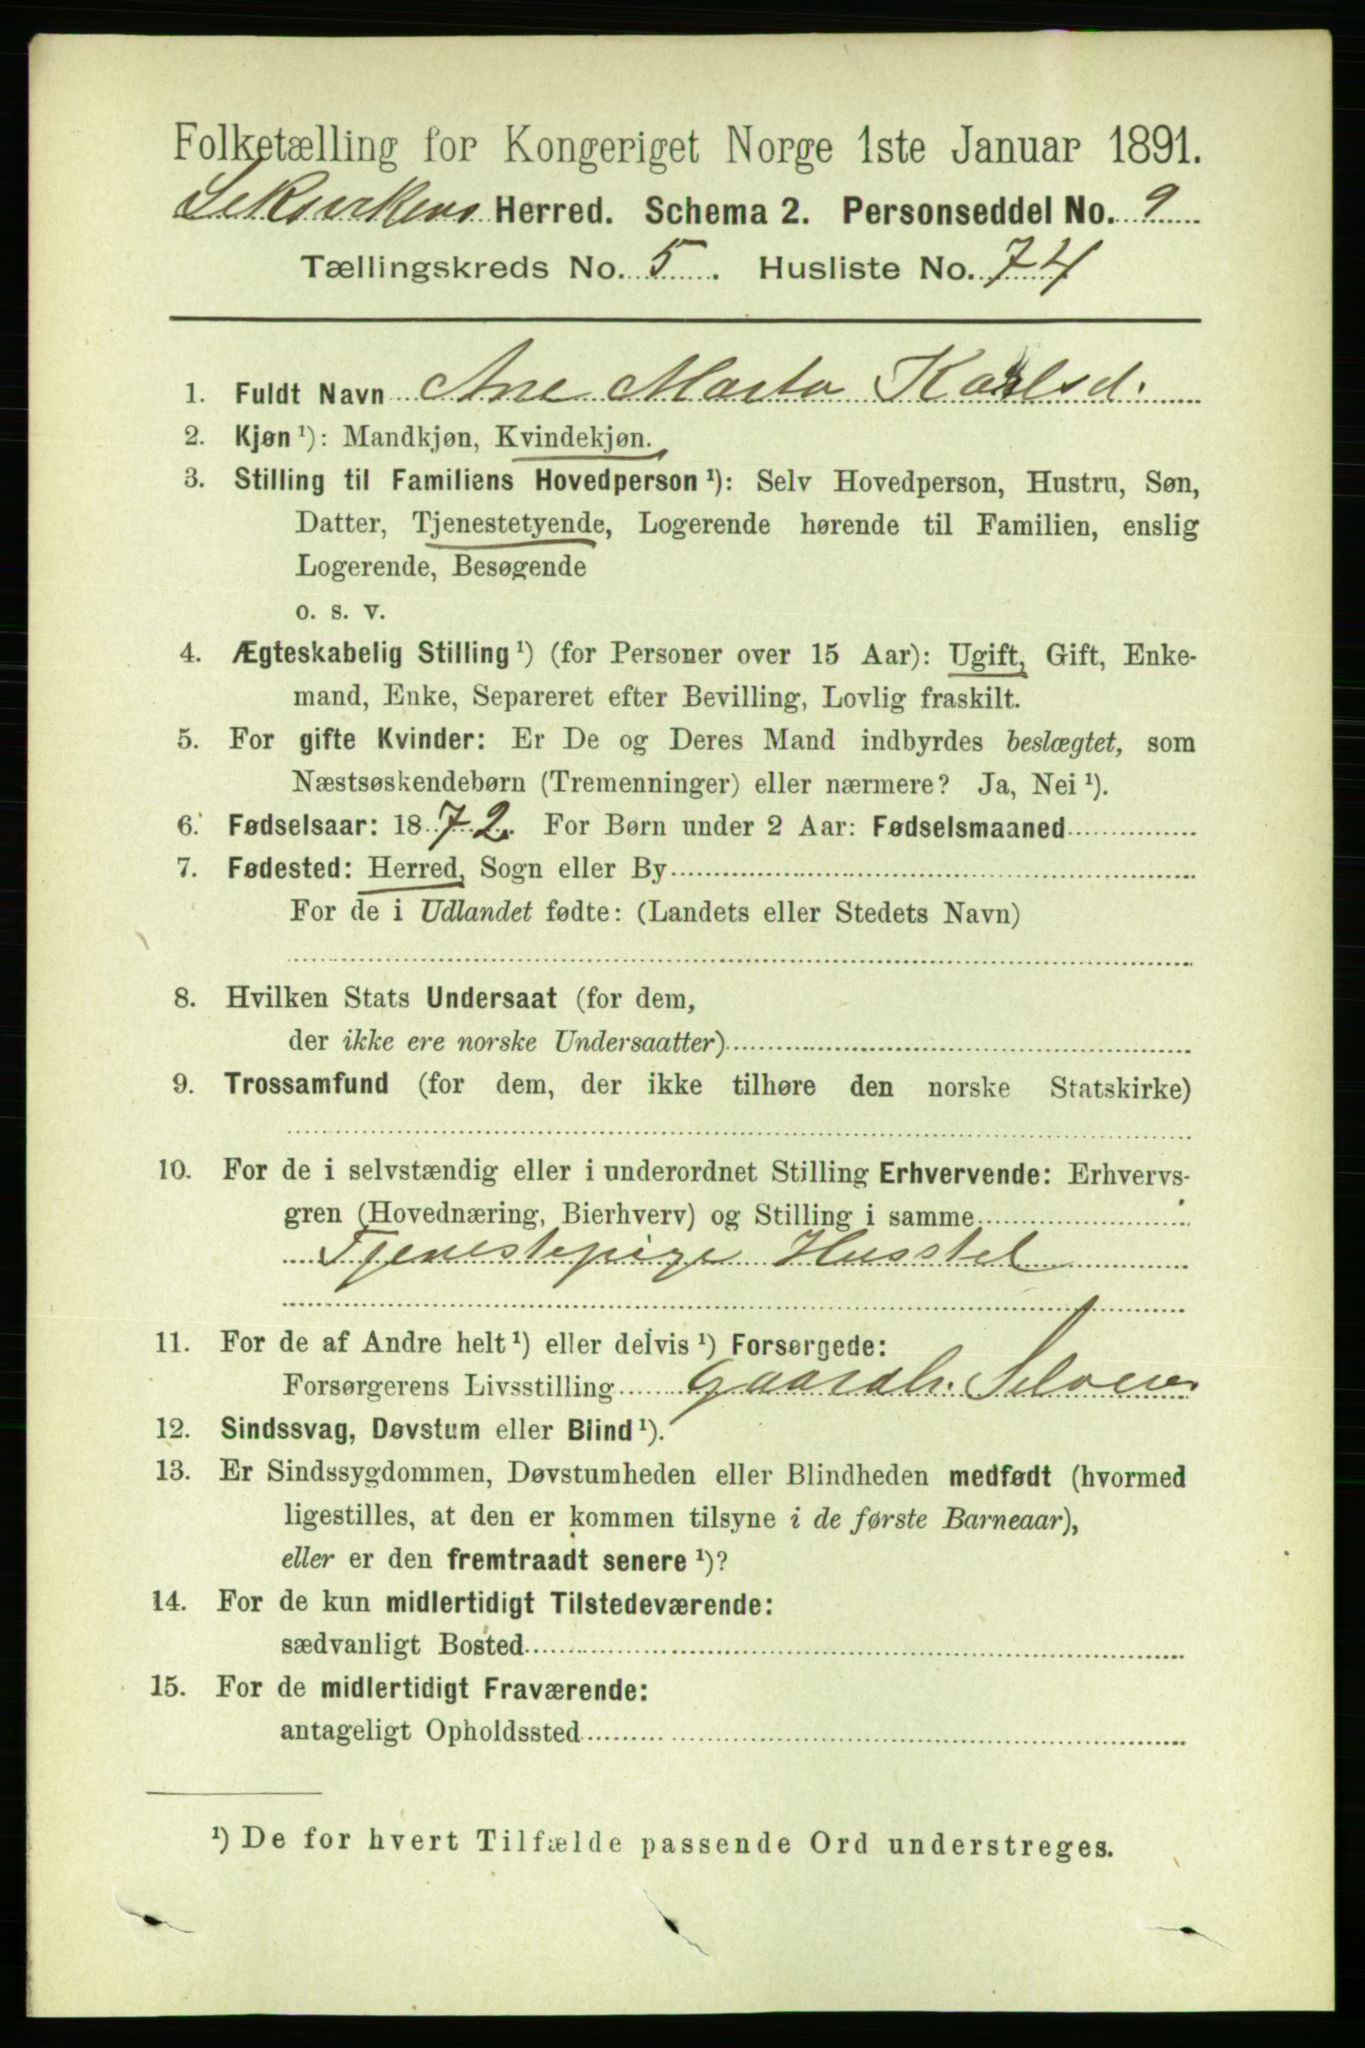 Folketælling for Kongeriget Norge 1ste Januar 1891.
Leksvikens Herred. Schema 2. Personseddel No. 9
Tællingskreds No. 5. Husliste No. 74
1. Fuldt Navn Ane Marta Karlsd.
2. Kjøn ¹): Mandkjøn, Kvindekjøn.
3. Stilling til Familiens Hovedperson ¹): Selv Hovedperson, Hustru, Søn,
Datter, Tjenestetyende, Logerende hørende til Familien, enslig
Logerende, Besøgende
o. s. v.
4. Ægteskabelig Stilling ¹) (for Personer over 15 Aar): Ugift, Gift, Enke-
mand, Enke, Separeret efter Bevilling, Lovlig fraskilt.
5. For gifte Kvinder: Er De og Deres Mand indbyrdes beslægtet, som
Næstsøskendebørn (Tremenninger) eller nærmere? Ja, Nei ¹).
6. Fødselsaar: 1872. For Børn under 2 Aar: Fødselsmaaned
7. Fødested: Herred, Sogn eller By
For de i Udlandet fødte: (Landets eller Stedets Navn)
8. Hvilken Stats Undersaat (for dem,
der ikke ere norske Undersaatter)
9. Trossamfund (for dem, der ikke tilhøre den norske Statskirke)
10. For de i selvstændig eller i underordnet Stilling Erhvervende: Erhvervs-
gren (Hovednæring, Bierhverv) og Stilling i samme
Tjenestepige Husstel
11. For de af Andre helt ¹) eller delvis ¹) Forsørgede:
Forsørgerens Livsstilling Gaardbr. Selveier
12. Sindssvag, Døvstum eller Blind ¹).
13. Er Sindssygdommen, Døvstumheden eller Blindheden medfødt (hvormed
ligestilles, at den er kommen tilsyne i de første Barneaar),
eller er den fremtraadt senere ¹)?
14. For de kun midlertidigt Tilstedeværende:
sædvanligt Bosted
15. For de midlertidigt Fraværende:
antageligt Opholdssted
¹) De for hvert Tilfælde passende Ord understreges.